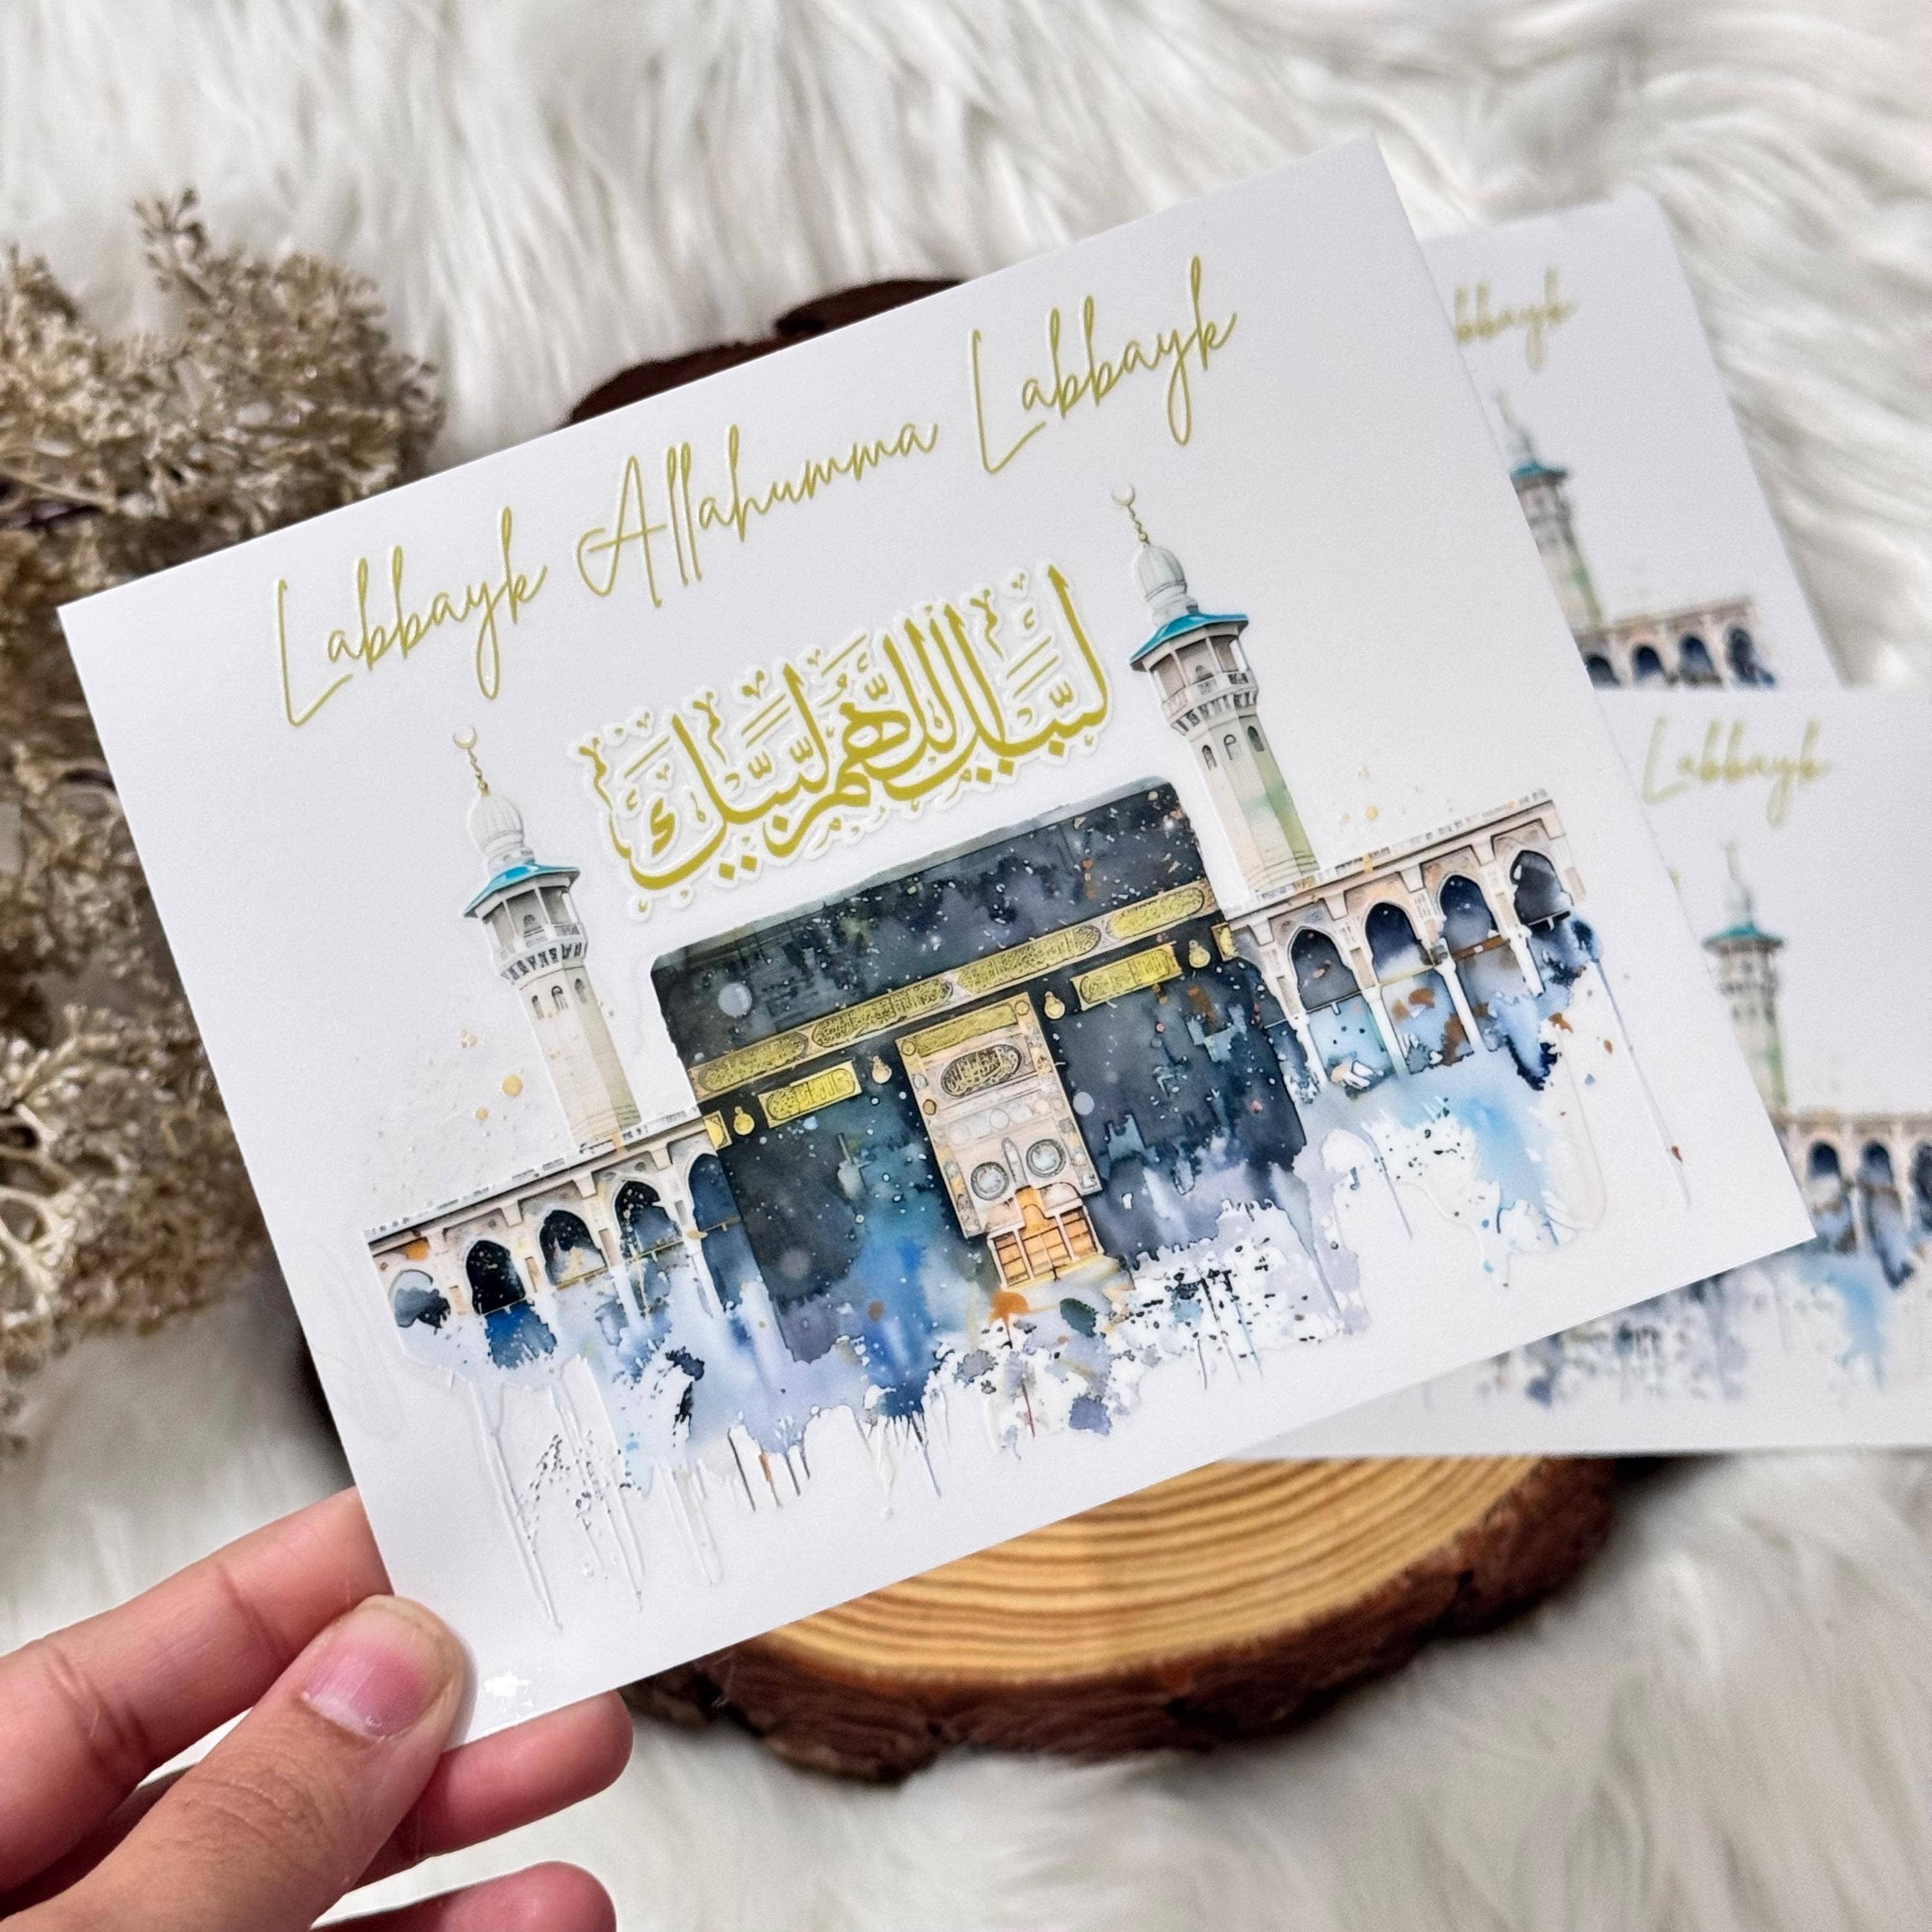 Labbayk Allahumma Labbayk
لَبَّيْكَ اللَّهُمَّ لَبَّيْكَ
bbayk
Labbayk